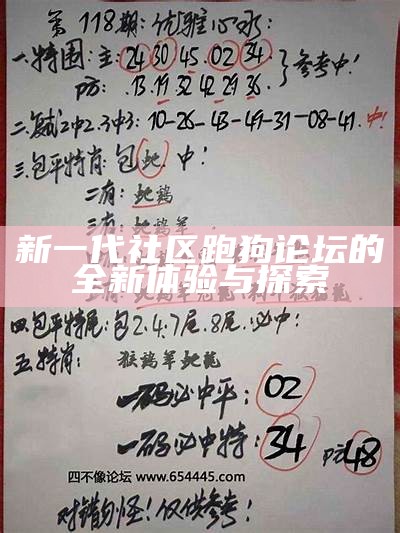 第118期:优雅心水:
一.特围:主:24 30 45. 02 34.
防:.13.19 32 42 29 36. 参考中!
二.复式2中2.3中3:10-26-43-49-31-08-41.中!
三.包平特肖:包蛇.中!
二肖:蛇鸡
新一代社区跑狗论坛的
全新体验与探索
四.包平特尾:包2.4.7尾.8尾.必中:
五.特肖:猴鸡羊蛇龍
一码必中平:02
一码必中特:34 防48
四不像论坛 www.654445.com
对错勿怪!仅供参考!